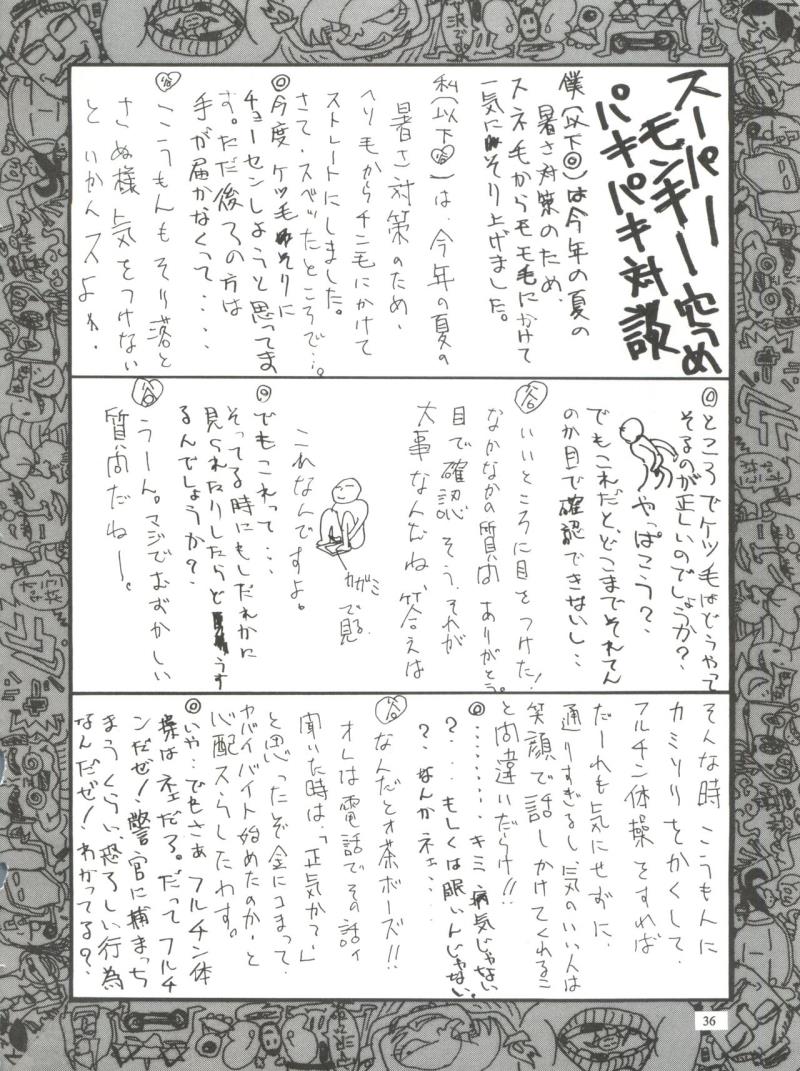 スーパー
モンキー空うめ
パキパキ対談
僕(以下◎)は今年の夏の
暑さ対策のため、
スネ毛からモモ毛にかけて
一気にそり上げました。
私(以下㊎)は、今年の夏の
暑さ対策のため、
ヘソ毛からチン毛にかけて
ストレートにしました。
さて、スベッたところで…。
◎今度ケツ毛そりに
チョーセンしようと思ってま
す。ただ後ろの方は
手が届かなくって・・・・
こうもんもそり落と
さぬ様気をつけない
といかんスよォ、
◎ところでケツ毛はどうやって
そるのが正しいのでしょうか？
やっぱこう？、
でもこれだと、どこまでそれてん
のか目で確認できないし・・
谷 いいところに目をつけた！
なかなかの質問ありがとう。
目で確認、そう、それが
大事なんだね、答えは
カガミ
で見る。
これなんですよ。
◎でもこれって・・・
そってる時にもしだれかに
見られたりしたらどうす
るんでしょうか？、
谷 うーん。マジでむずかしい
質問だねー。
そんな時こうもんに
カミソリをかくして、
フルチン体操をすれば
だーれも気にせずに、
通りすぎるし、気のいい人は
笑顔で話しかけてくれるこ
と間違いだらけ！！
◎・・・・・・・・キミ、病気じゃない
？・・・もしくは眠いんじゃない
？、なんかネェ・・・
谷 なんだとオ茶ボーズ！！
オレは電話でその話ィ
聞いた時は、「正気かて、」
と思ったぞ金にコまって、
ヤバイバイト始めたのか、と
心配スらしたわす。
◎いや・・でもさぁ フルチン体
操はネェだろ。だって フルチ
ンだぜ！、警官に捕まっち
まうくらい、恐ろしい行為
なんだぜ！わかってる？、
36